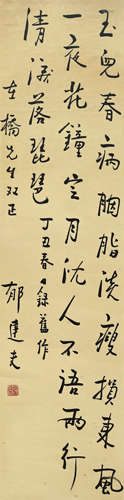 玉儿春病胭脂洗瘦损东风
一夜花钟定月沈人不语两行
清泪落琵琶
丁丑春日录旧作
在桥先生双正
郁达夫